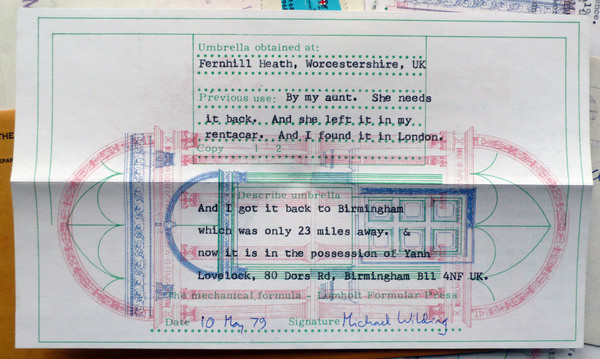 Umbrella obtained at:
Fernhill Heath, Worcestershire, UK
Previous use: By my aunt. She needs
it back. And she left it in my
rentacar. And I found it in London.
Copy 1 2
Describe umbrella
And I got it back to Birmingham
which was only 23 miles away. &
now it is in the possession of Yann
Lovelock, 80 Dors Rd, Birmingham B11 4NF UK.
The mechanical formula - Lomholt Formular Press
Date 10 May 79 Signature Michael Wilding